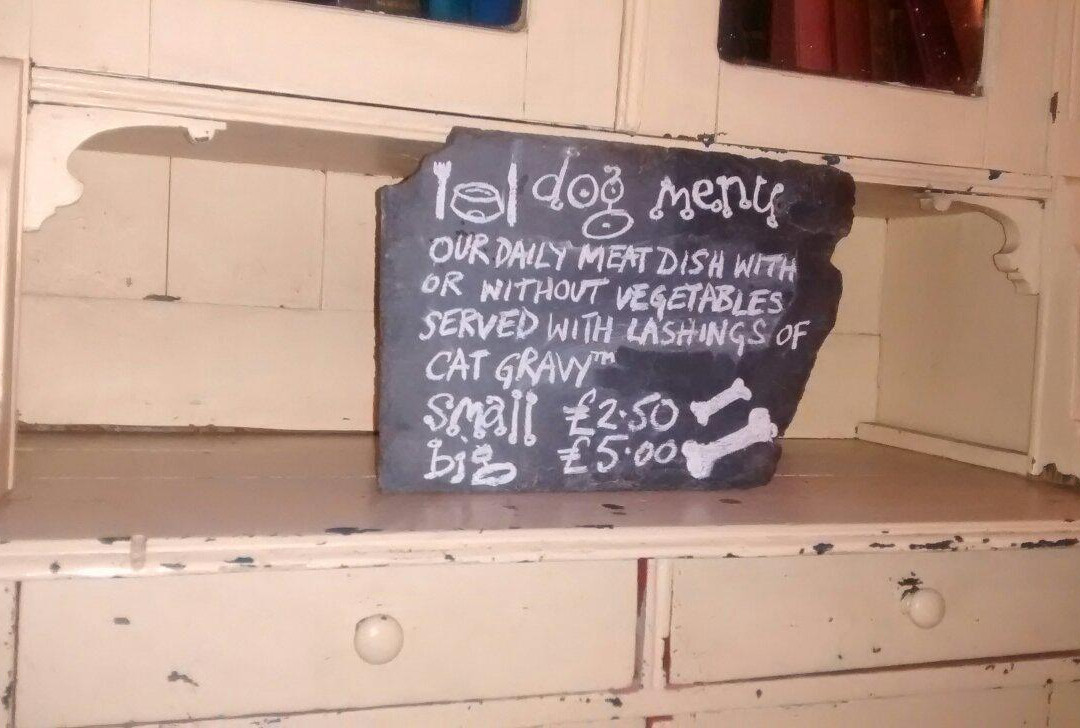 dog menu
OUR DAILY MEAT DISH WITH
OR WITHOUT VEGETABLES
SERVED WITH LASHINGS OF
CAT GRAVY™
small £2.50
big £5.00